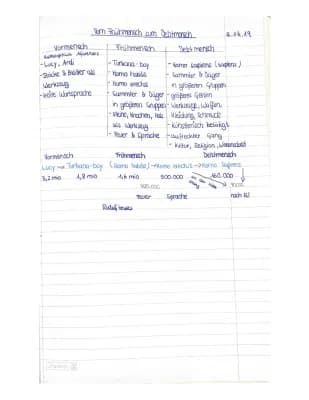 Vom Frühmensch zum Jetztmensch 2.04.19
Vormensch Frühmensch Jetztmensch
- Lucy, Ardi
- Stöcke & Blätter als
Werkzeug
- keine Wortsprache
- Turkana-boy
- Homo habilis
- Homo erectus
- Sammler & Jäger
in größeren Gruppen
- Steine, Knochen, Holz
als Werkzeug
- Feuer & Sprache
- Homo Sapiens (sapiens)
- Sammler & Jäger
in größeren Gruppen
- größeres Gehirn
- Werkzeuge, Waffen,
Kleidung, Schmuck
- künstlerisch
- aufrechter Gang
- Kultur, Religion, Wissenschaft
Vormensch Frühmensch Jetztmensch
Lucy → Turkana-boy (Homo habilis) → Homo erectus → Homo Sapiens
3,2 mio 1,8 mio 1,6 mio 500.000 160.000
Feuer Sprache nach EU